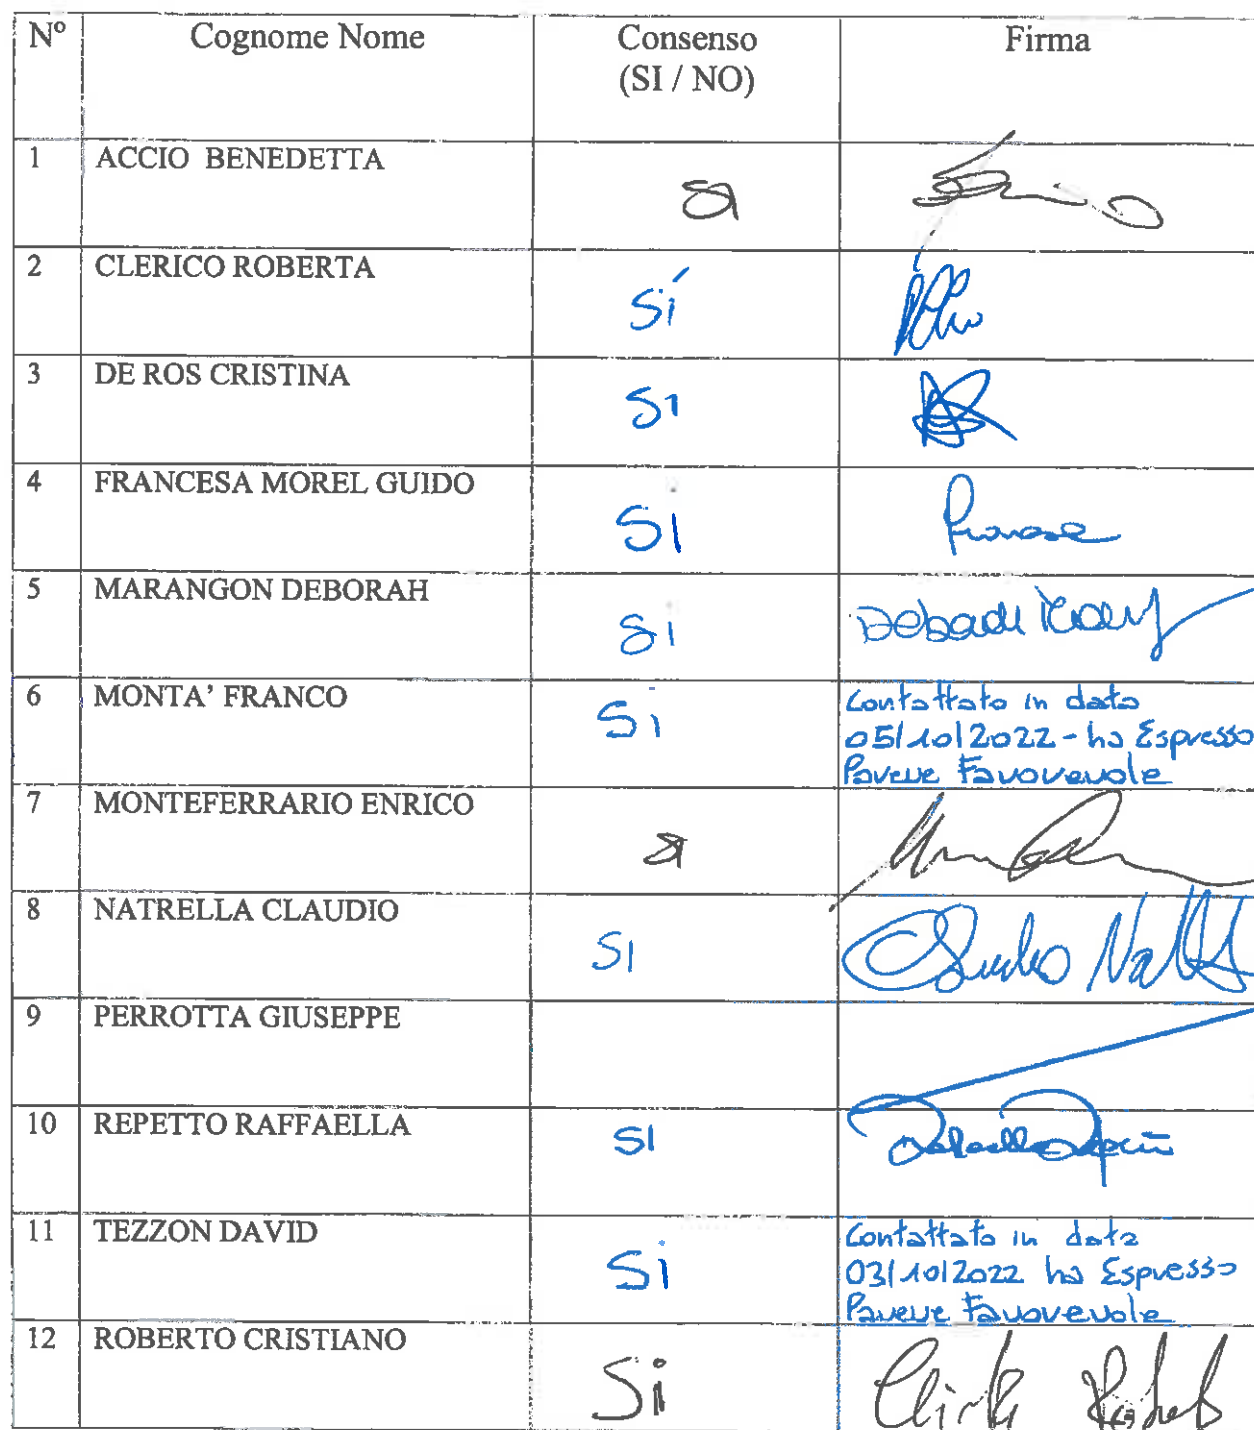 Nº Cognome Nome Consenso Firma
(SI / NO)
1 ACCIO BENEDETTA SI
2 CLERICO ROBERTA Sí
3 DE ROS CRISTINA SI
4 FRANCESA MOREL GUIDO Si
5 MARANGON DEBORAH Si
6 MONTA' FRANCO Si Contattato in data
05/10/2022 - ha Espresso
Parere Favorevole
7 MONTEFERRARIO ENRICO SI
8 NATRELLA CLAUDIO SI
9 PERROTTA GIUSEPPE
10 REPETTO RAFFAELLA SI
11 TEZZON DAVID Si Contattato in data
03/10/2022 ha Espresso
Parere Favorevole
12 ROBERTO CRISTIANO Si